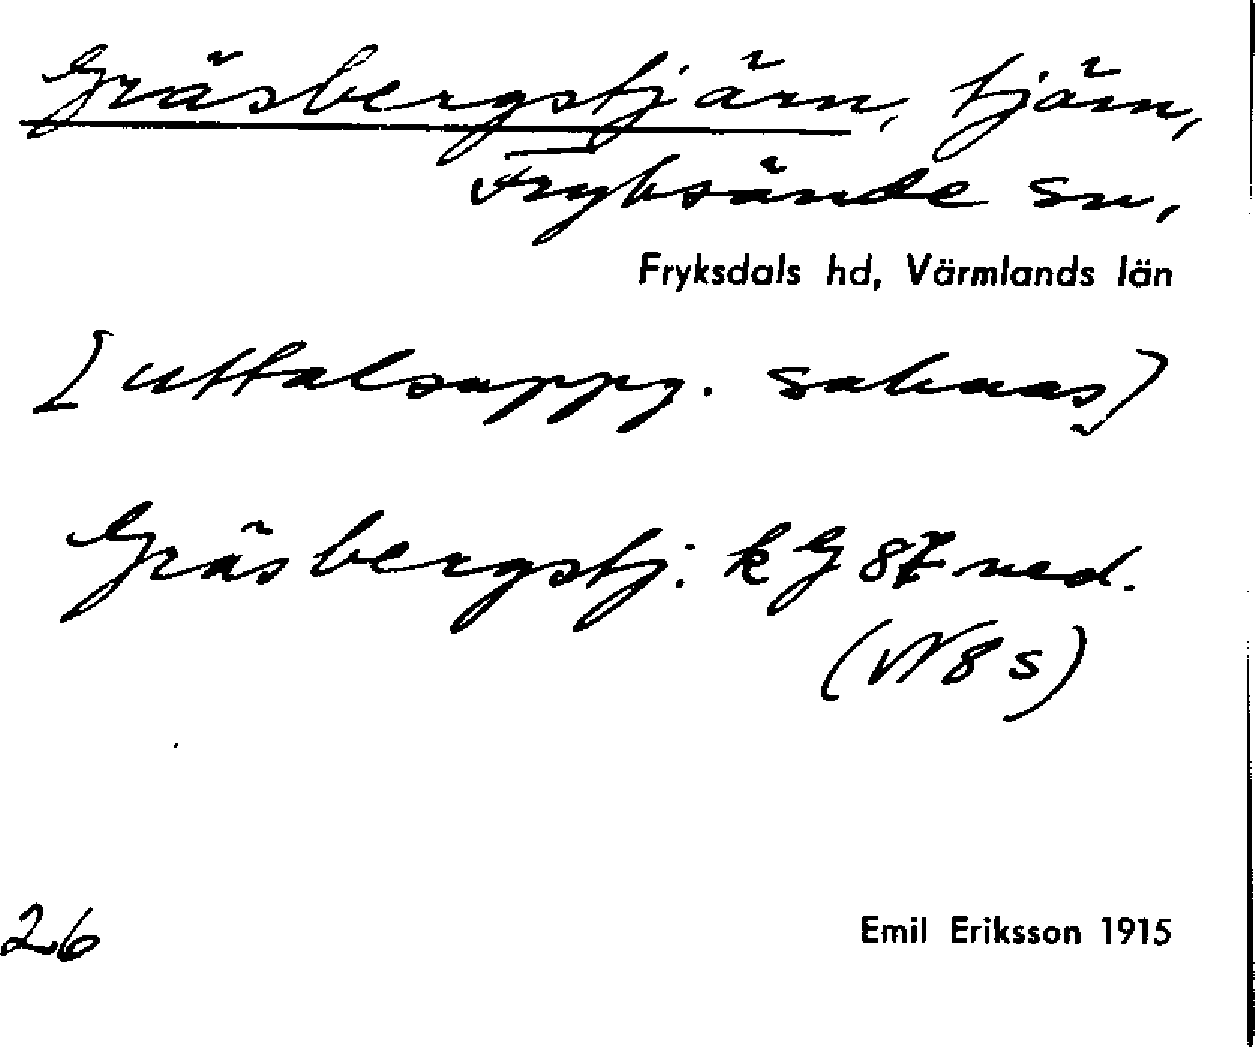 Gräsbergstjärn, tjärn,
Fryksände sn,
Fryksdals hd, Värmlands län
[uttalsuppg. saknas]
Gräsbergstj: k G 87 ned.
(N8s)
26
Emil Eriksson 1915